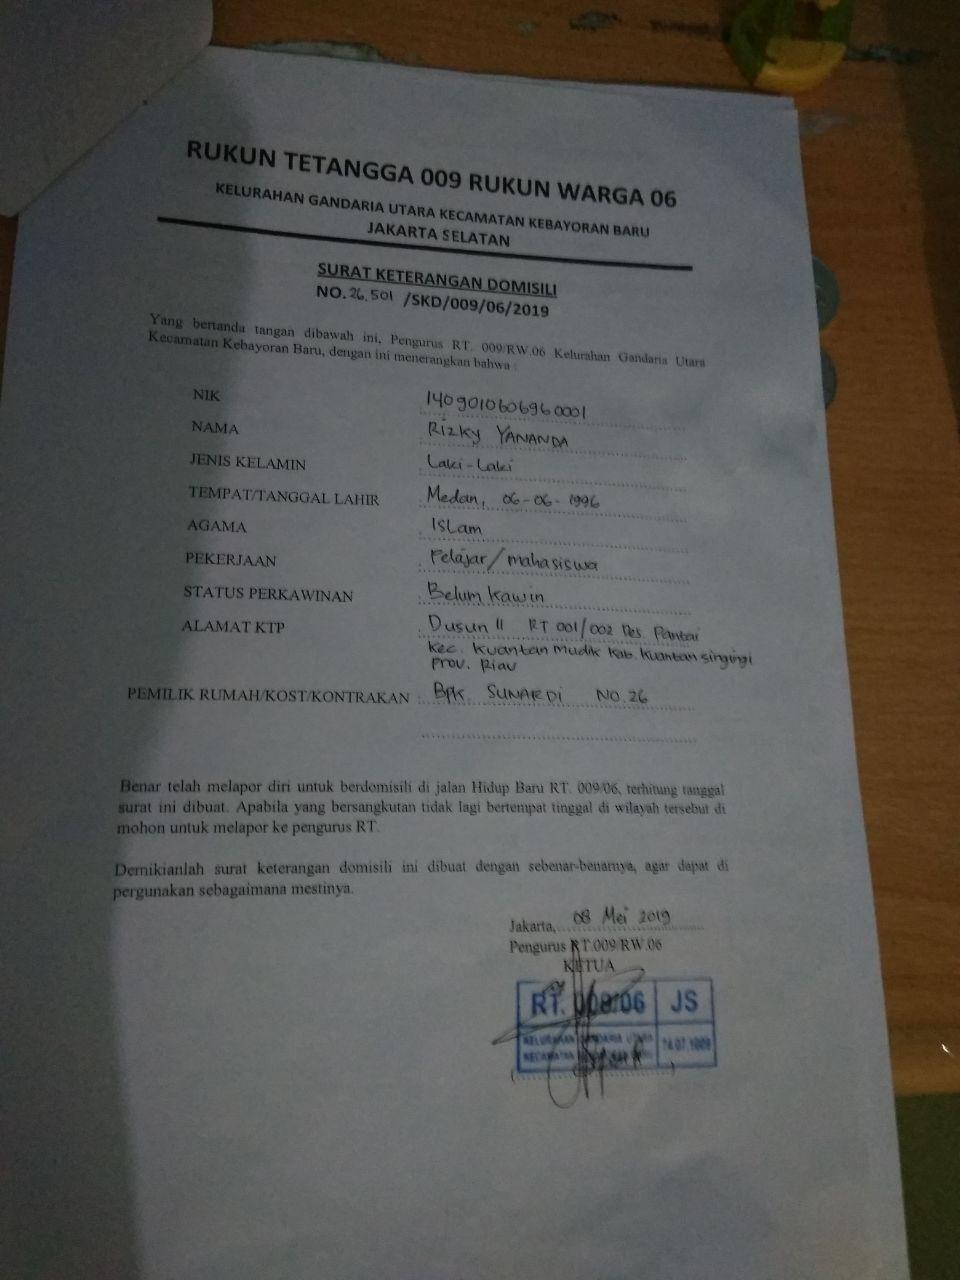 RUKUN TETANGGA 009 RUKUN WARGA 06
KELURAHAN GANDARIA UTARA KECAMATAN KEBAYORAN BARU
JAKARTA SELATAN
SURAT KETERANGAN DOMISILI
NO. 26.501 /SKD/009/06/2019
Yang bertanda tangan dibawah ini, Pengurus RT. 009/RW.06 Kelurahan Gandaria Utara
Kecamatan Kebayoran Baru, dengan ini menerangkan bahwa :
NIK : 1409010606960001
NAMA : Rizky YANANDA
JENIS KELAMIN : Laki-Laki
TEMPAT/TANGGAL LAHIR : Medan, 06-06-1996
AGAMA : Islam
PEKERJAAN : Pelajar/mahasiswa
STATUS PERKAWINAN : Belum Kawin
ALAMAT KTP : Dusun II RT 001/002 Des. Pantai
Kec. Kuantan Mudik Kab. Kuantan Singingi
Prov. Riau
PEMILIK RUMAH/KOST/KONTRAKAN : Bpk. SUNARDI NO.26
Benar telah melapor diri untuk berdomisili di jalan Hidup Baru RT. 009/06, terhitung tanggal
surat ini dibuat. Apabila yang bersangkutan tidak lagi bertempat tinggal di wilayah tersebut di
mohon untuk melapor ke pengurus RT.
Demikianlah surat keterangan domisili ini dibuat dengan sebenar-benarnya, agar dapat di
pergunakan sebagaimana mestinya.
Jakarta, 08 Mei 2019
Pengurus RT.009/RW.06
KETUA
RT. 009/06 JS
KELURAHAN GANDARIA UTARA
KECAMATAN